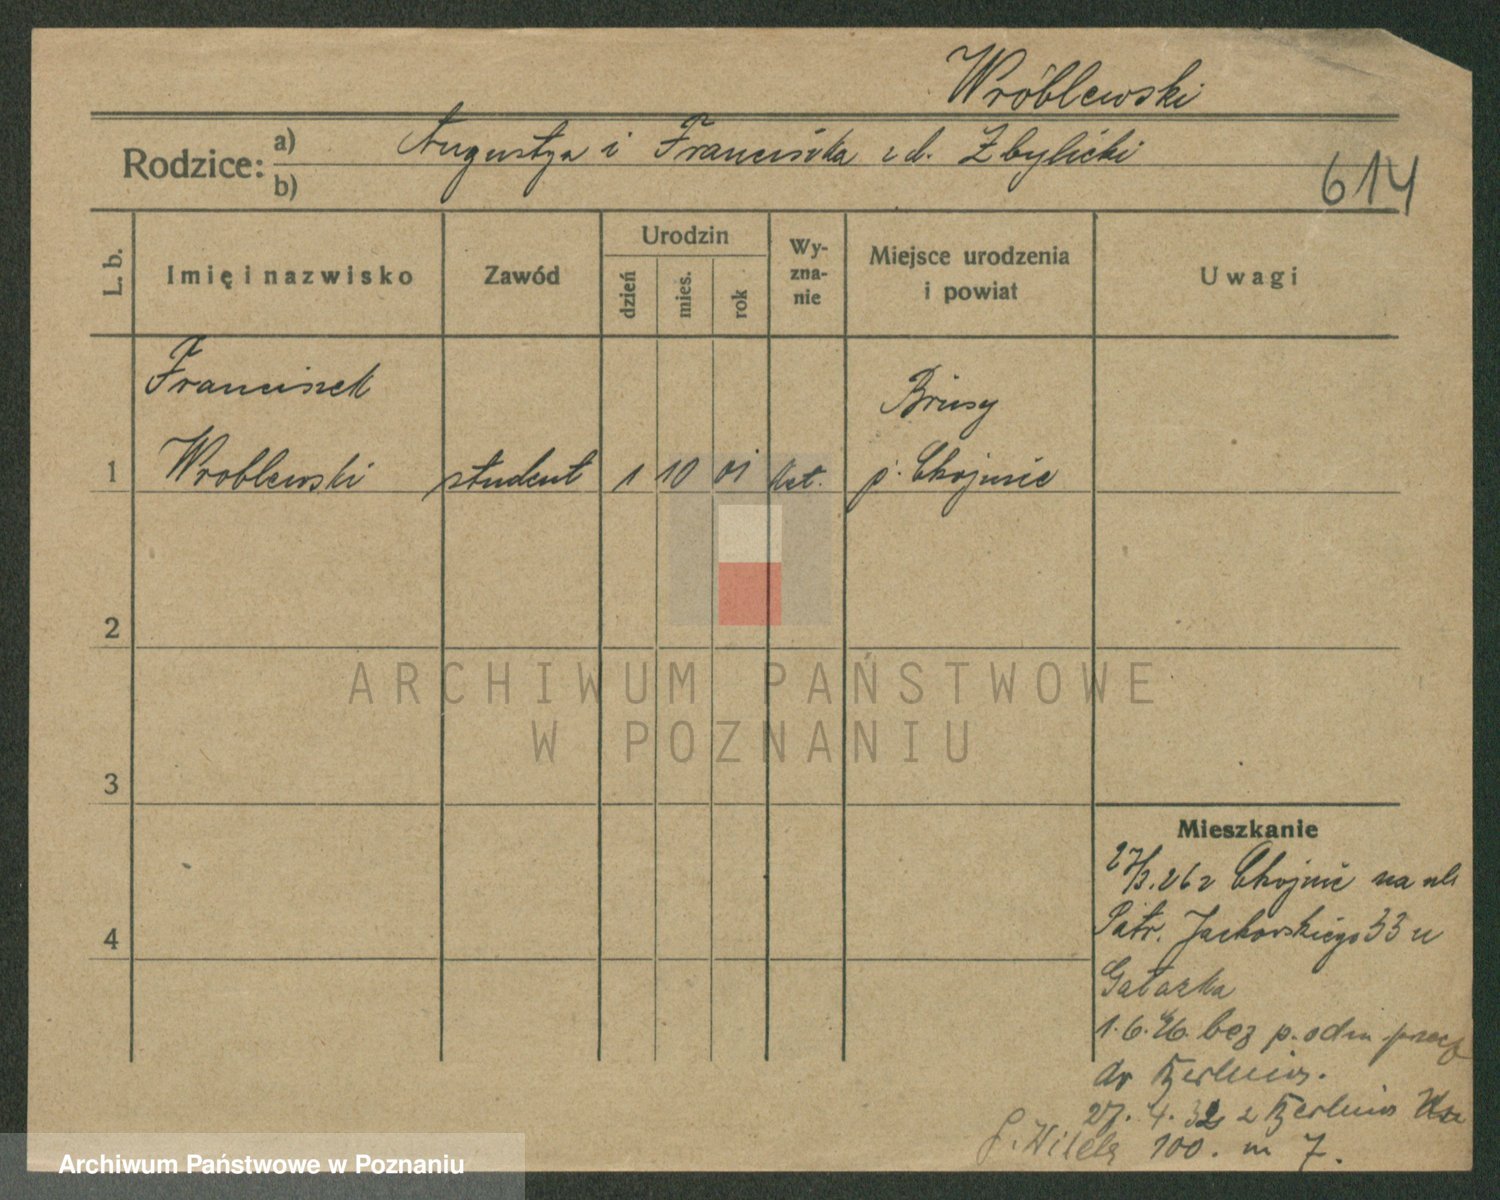 Wróblewski
Rodzice: a) Augustyn i Franciszka z d. Zbylicki
b)
614
L. b. Imię i nazwisko Zawód Urodzin dzień mies. rok Wy-zna-nie Miejsce urodzenia i powiat Uwagi
Franciszek Brusy
1 Wroblewski student 1 10 01 kat. p. Chojnice
2
ARCHIWUM PAŃSTWOWE
W POZNANIU
3
Mieszkanie
27/3.26 z Chojnic na ul.
4 Patr. Jackowskiego 33 u
Gałązka
1.6.26. bez p. odm
do Berlina.
27. 4. 32 z Berlina
100. m 7.
Archiwum Państwowe w Poznaniu